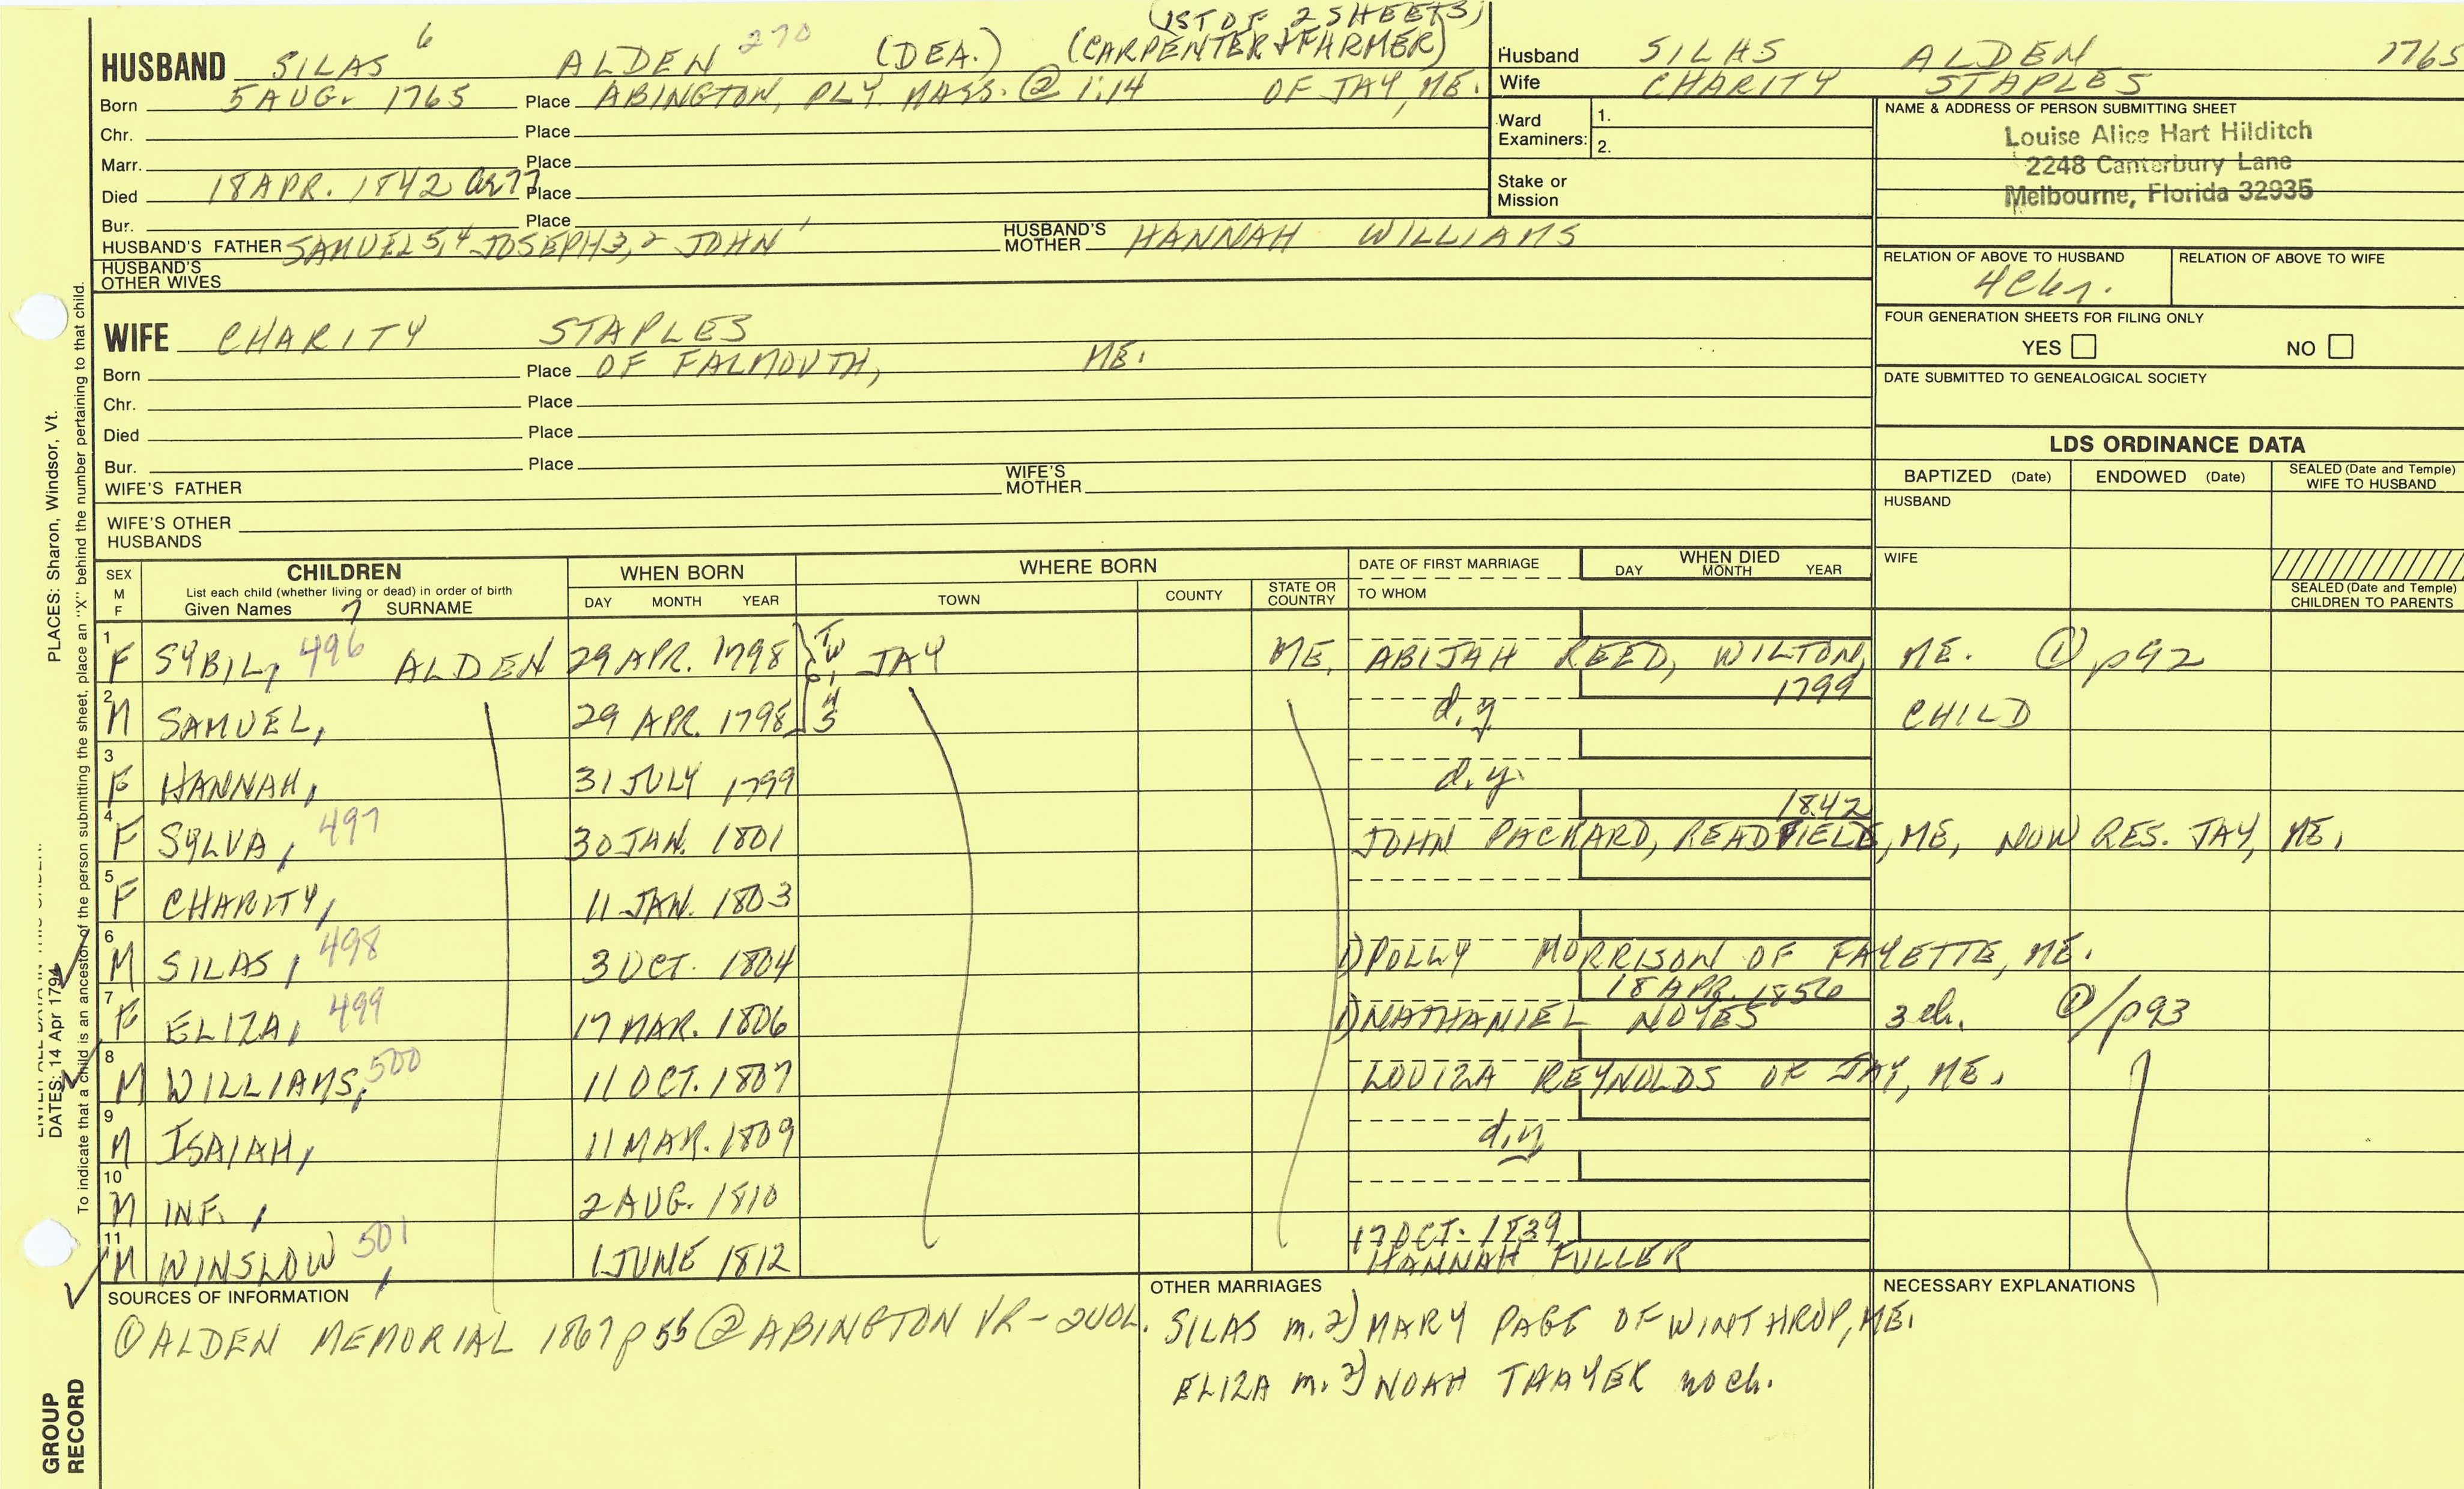 (1ST OF 2 SHEETS)
HUSBAND SILAS 6 ALDEN 270 (DEA.) (CARPENTER & FARMER)
Born 5 AUG. 1765 Place ABINGTON, PLY. MASS. @ 1:14 OF JAY, ME.
Chr. Place
Marr. Place
Died 18 APR. 1842 ae77 Place
Bur. Place
HUSBAND'S FATHER SAMUEL 5,4 JOSEPH 3,2 JOHN 1 HUSBAND'S MOTHER HANNAH WILLIAMS
HUSBAND'S OTHER WIVES
WIFE CHARITY STAPLES
Born Place OF FALMOUTH, ME.
Chr. Place
Died Place
Bur. Place
WIFE'S FATHER WIFE'S MOTHER
WIFE'S OTHER HUSBANDS
Husband SILAS ALDEN 1765
Wife CHARITY STAPLES
Ward Examiners: 1.
2.
Stake or Mission
NAME & ADDRESS OF PERSON SUBMITTING SHEET
Louise Alice Hart Hilditch
2248 Canterbury Lane
Melbourne, Florida 32935
RELATION OF ABOVE TO HUSBAND RELATION OF ABOVE TO WIFE
FOUR GENERATION SHEETS FOR FILING ONLY
YES NO
DATE SUBMITTED TO GENEALOGICAL SOCIETY
LDS ORDINANCE DATA
BAPTIZED (Date) ENDOWED (Date) SEALED (Date and Temple) WIFE TO HUSBAND
HUSBAND
WIFE
SEALED (Date and Temple) CHILDREN TO PARENTS
SEX M F CHILDREN WHEN BORN WHERE BORN DATE OF FIRST MARRIAGE WHEN DIED
List each child (whether living or dead) in order of birth DAY MONTH YEAR
Given Names 7 SURNAME DAY MONTH YEAR TOWN COUNTY STATE OR COUNTRY TO WHOM
1 F SYBIL, 496 ALDEN 29 APR. 1798 JAY ME. ABIJAH REED, WILTON, ME. ① p92
1799
2 M SAMUEL, 29 APR. 1798 d.y. CHILD
3 F HANNAH, 31 JULY 1799 d.y.
1842
4 F SYLVA, 497 30 JAN. 1801 JOHN PACKARD, READFIELD, ME, NOW RES. JAY, ME.
5 F CHARITY, 11 JAN. 1803
6 M SILAS, 498 3 OCT. 1804 1) POLLY MORRISON OF FAYETTE, ME.
18 APR. 1856
7 F ELIZA, 499 17 MAR. 1806 1) NATHANIEL NOYES 3 ch. ①/p93
8 M WILLIAMS, 500 11 OCT. 1807 LOUIZA REYNOLDS OF JAY, ME.
9 M ISAIAH, 11 MAR. 1809 d.y.
10 M INF., 2 AUG. 1810
17 OCT. 1839
11 M WINSLOW, 501 1 JUNE 1812 HANNAH FULLER
SOURCES OF INFORMATION
① ALDEN MEMORIAL 1867 p 55 ② ABINGTON VR - 2 VOL.
OTHER MARRIAGES
SILAS m. 2) MARY PAGE OF WINTHROP, ME.
ELIZA m. 2) NOAH THAYER no ch.
NECESSARY EXPLANATIONS
PLACES: Sharon, Windsor, Vt.
DATES: 14 Apr 1794
To indicate that a child is an ancestor of the person submitting the sheet, place an "X" behind the number pertaining to that child.
GROUP RECORD